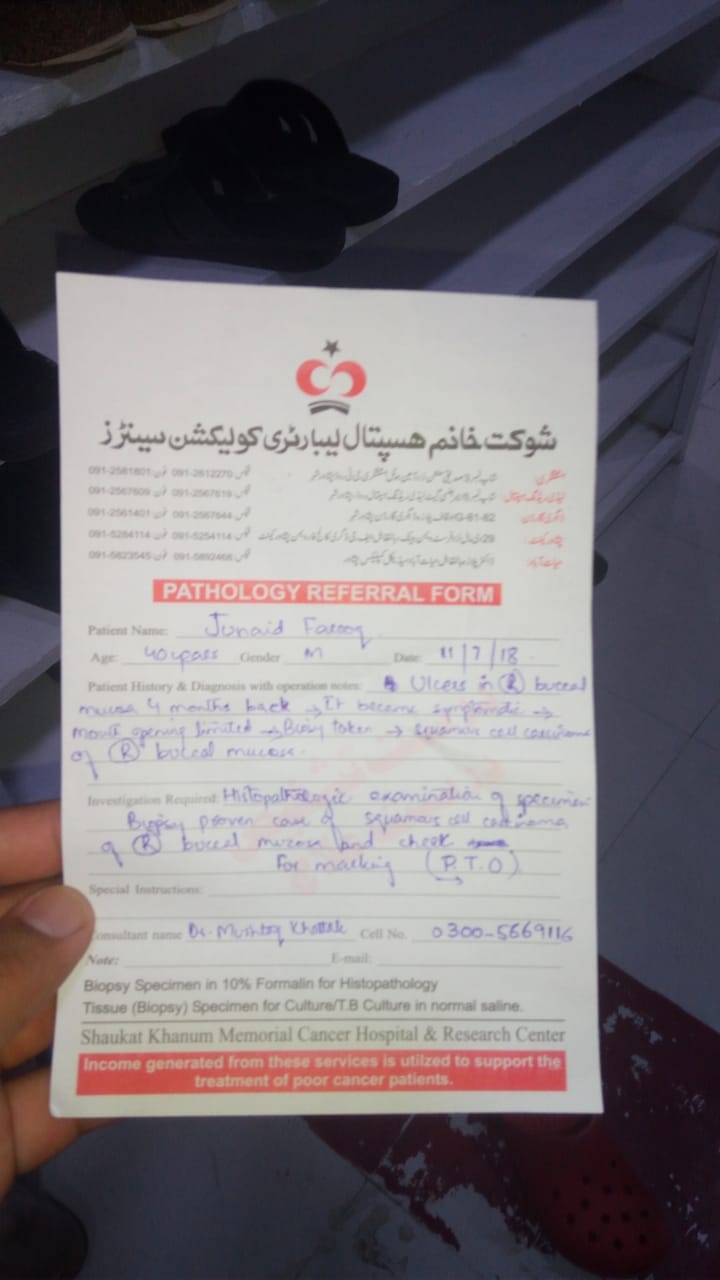 شوکت خانم ہسپتال لیبارٹری کولیکشن سینٹرز
فون 091-2581801 فیکس 091-2612270
فون 091-2567609 فیکس 091-2567619
لیڈی ریڈنگ ہسپتال:
فون 091-2561401 فیکس 091-2567544 G-61-62
ڈبگری گارڈن:
فون 091-5284114 فیکس 091-5254114
پشاور کینٹ:
فون 091-5823545 فیکس 091-5892468
حیات آباد:
PATHOLOGY REFERRAL FORM
Patient Name: Junaid Farooq
Age: 40 years Gender M Date: 11/7/18
Patient History & Diagnosis with operation notes: Ulcers in (R) buccal
mucosa 4 months back → It became symptomatic →
mouth opening limited → Biopsy taken → squamous cell carcinoma
of (R) buccal mucosa.
Investigation Required: Histopathologic examination of specimen
Biopsy proven case of squamous cell carcinoma
of (R) buccal mucosa and cheek
For marking (P.T.O)
Special Instructions:
Consultant name Dr. Mushtaq Khattak Cell No. 0300-5669116
Note: E-mail:
Biopsy Specimen in 10% Formalin for Histopathology
Tissue (Biopsy) Specimen for Culture/T.B Culture in normal saline.
Shaukat Khanum Memorial Cancer Hospital & Research Center
Income generated from these services is utilzed to support the
treatment of poor cancer patients.